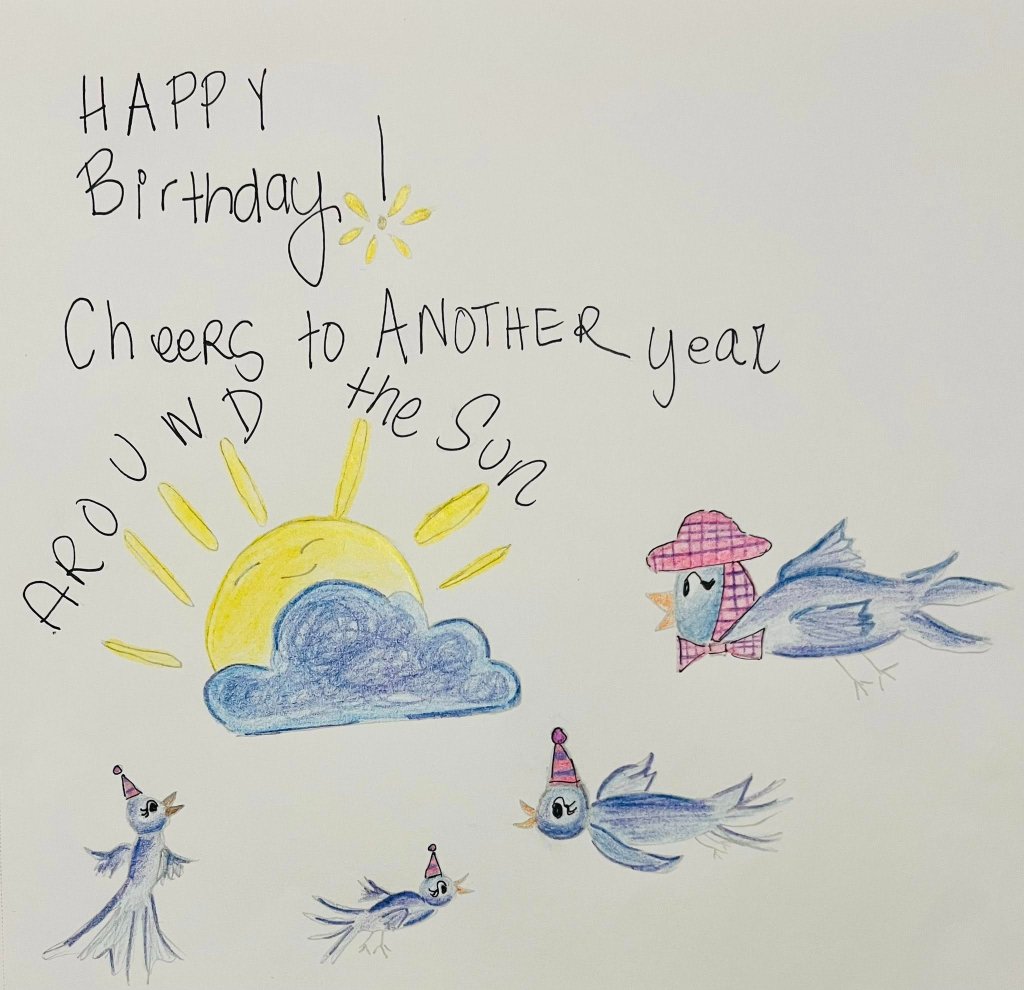 HAPPY
Birthday!
Cheers to ANOTHER year
AROUND the Sun